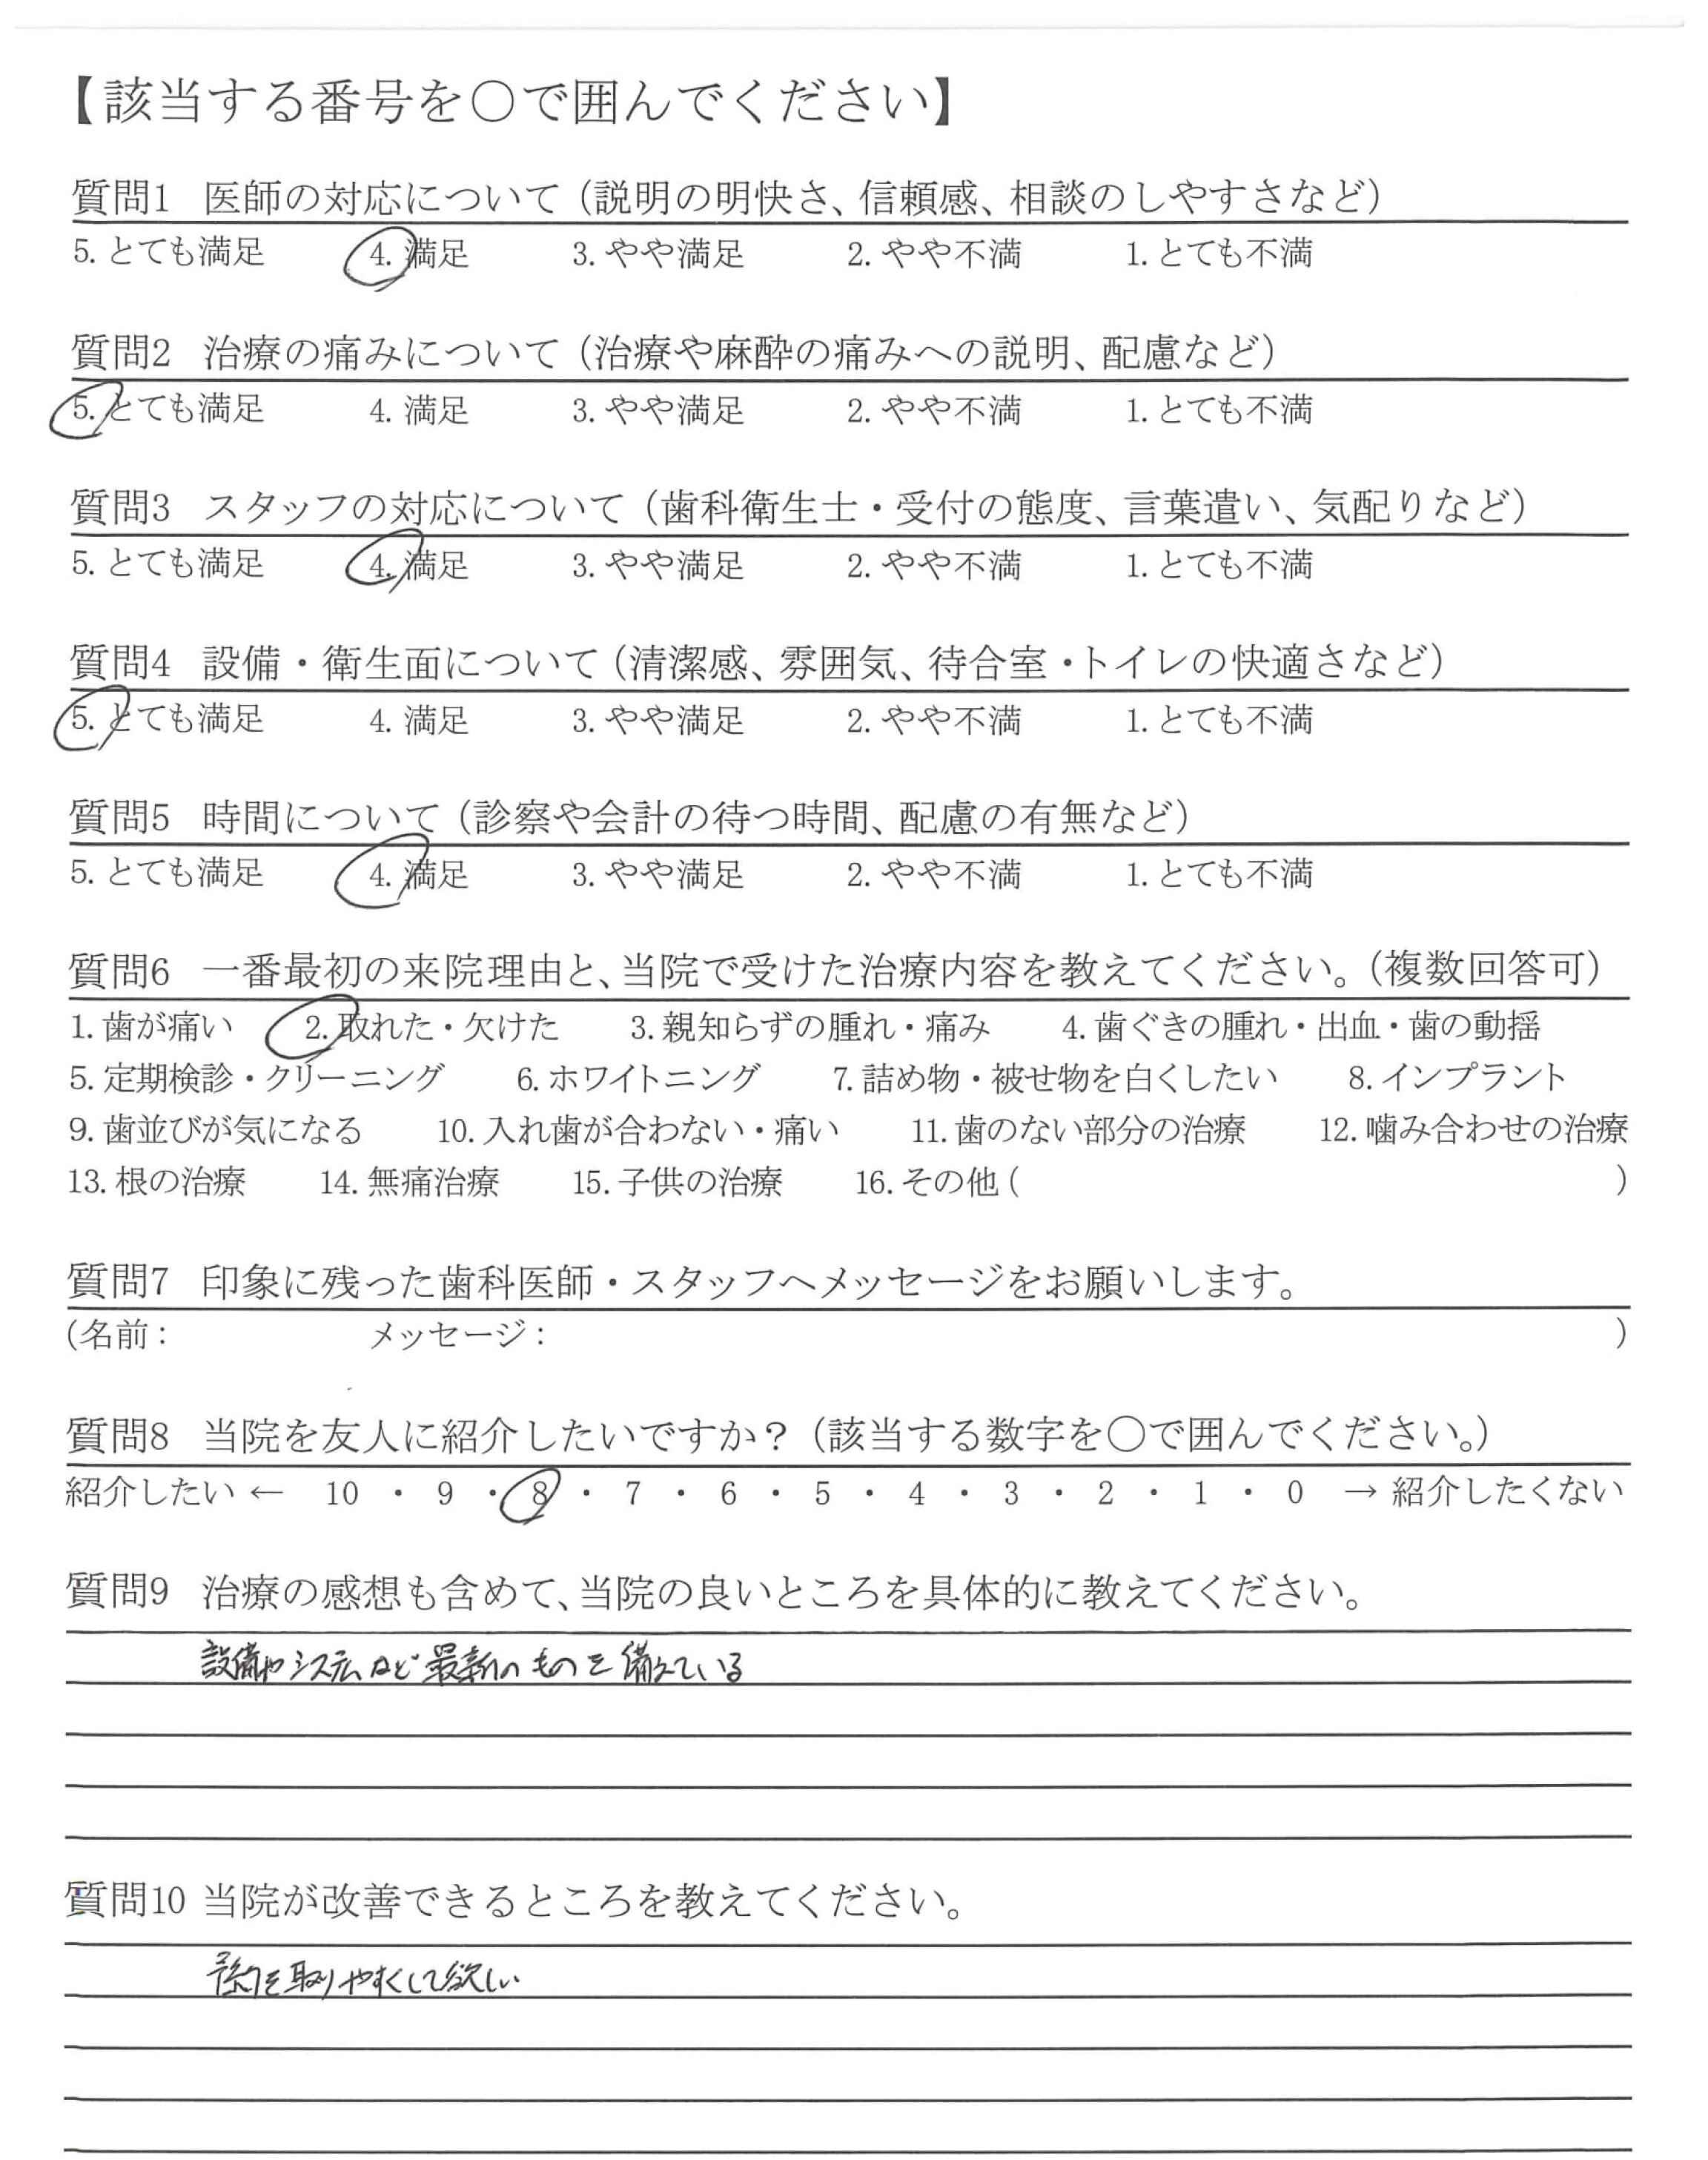 【該当する番号を○で囲んでください】
質問1 医師の対応について（説明の明快さ、信頼感、相談のしやすさなど）
5. とても満足 4. 満足 3. やや満足 2. やや不満 1. とても不満
質問2 治療の痛みについて（治療や麻酔の痛みへの説明、配慮など）
5. とても満足 4. 満足 3. やや満足 2. やや不満 1. とても不満
質問3 スタッフの対応について（歯科衛生士・受付の態度、言葉遣い、気配りなど）
5. とても満足 4. 満足 3. やや満足 2. やや不満 1. とても不満
質問4 設備・衛生面について（清潔感、雰囲気、待合室・トイレの快適さなど）
5. とても満足 4. 満足 3. やや満足 2. やや不満 1. とても不満
質問5 時間について（診察や会計の待つ時間、配慮の有無など）
5. とても満足 4. 満足 3. やや満足 2. やや不満 1. とても不満
質問6 一番最初の来院理由と、当院で受けた治療内容を教えてください。（複数回答可）
1. 歯が痛い 2. 取れた・欠けた 3. 親知らずの腫れ・痛み 4. 歯ぐきの腫れ・出血・歯の動揺
5. 定期検診・クリーニング 6. ホワイトニング 7. 詰め物・被せ物を白くしたい 8. インプラント
9. 歯並びが気になる 10. 入れ歯が合わない・痛い 11. 歯のない部分の治療 12. 噛み合わせの治療
13. 根の治療 14. 無痛治療 15. 子供の治療 16. その他 ( )
質問7 印象に残った歯科医師・スタッフへメッセージをお願いします。
(名前： メッセージ： )
質問8 当院を友人に紹介したいですか？（該当する数字を○で囲んでください。）
紹介したい ← 10 ・ 9 ・ 8 ・ 7 ・ 6 ・ 5 ・ 4 ・ 3 ・ 2 ・ 1 ・ 0 → 紹介したくない
質問9 治療の感想も含めて、当院の良いところを具体的に教えてください。
設備やシステムなど最新のものを備えている
質問10 当院が改善できるところを教えてください。
予約を取りやすくして欲しい